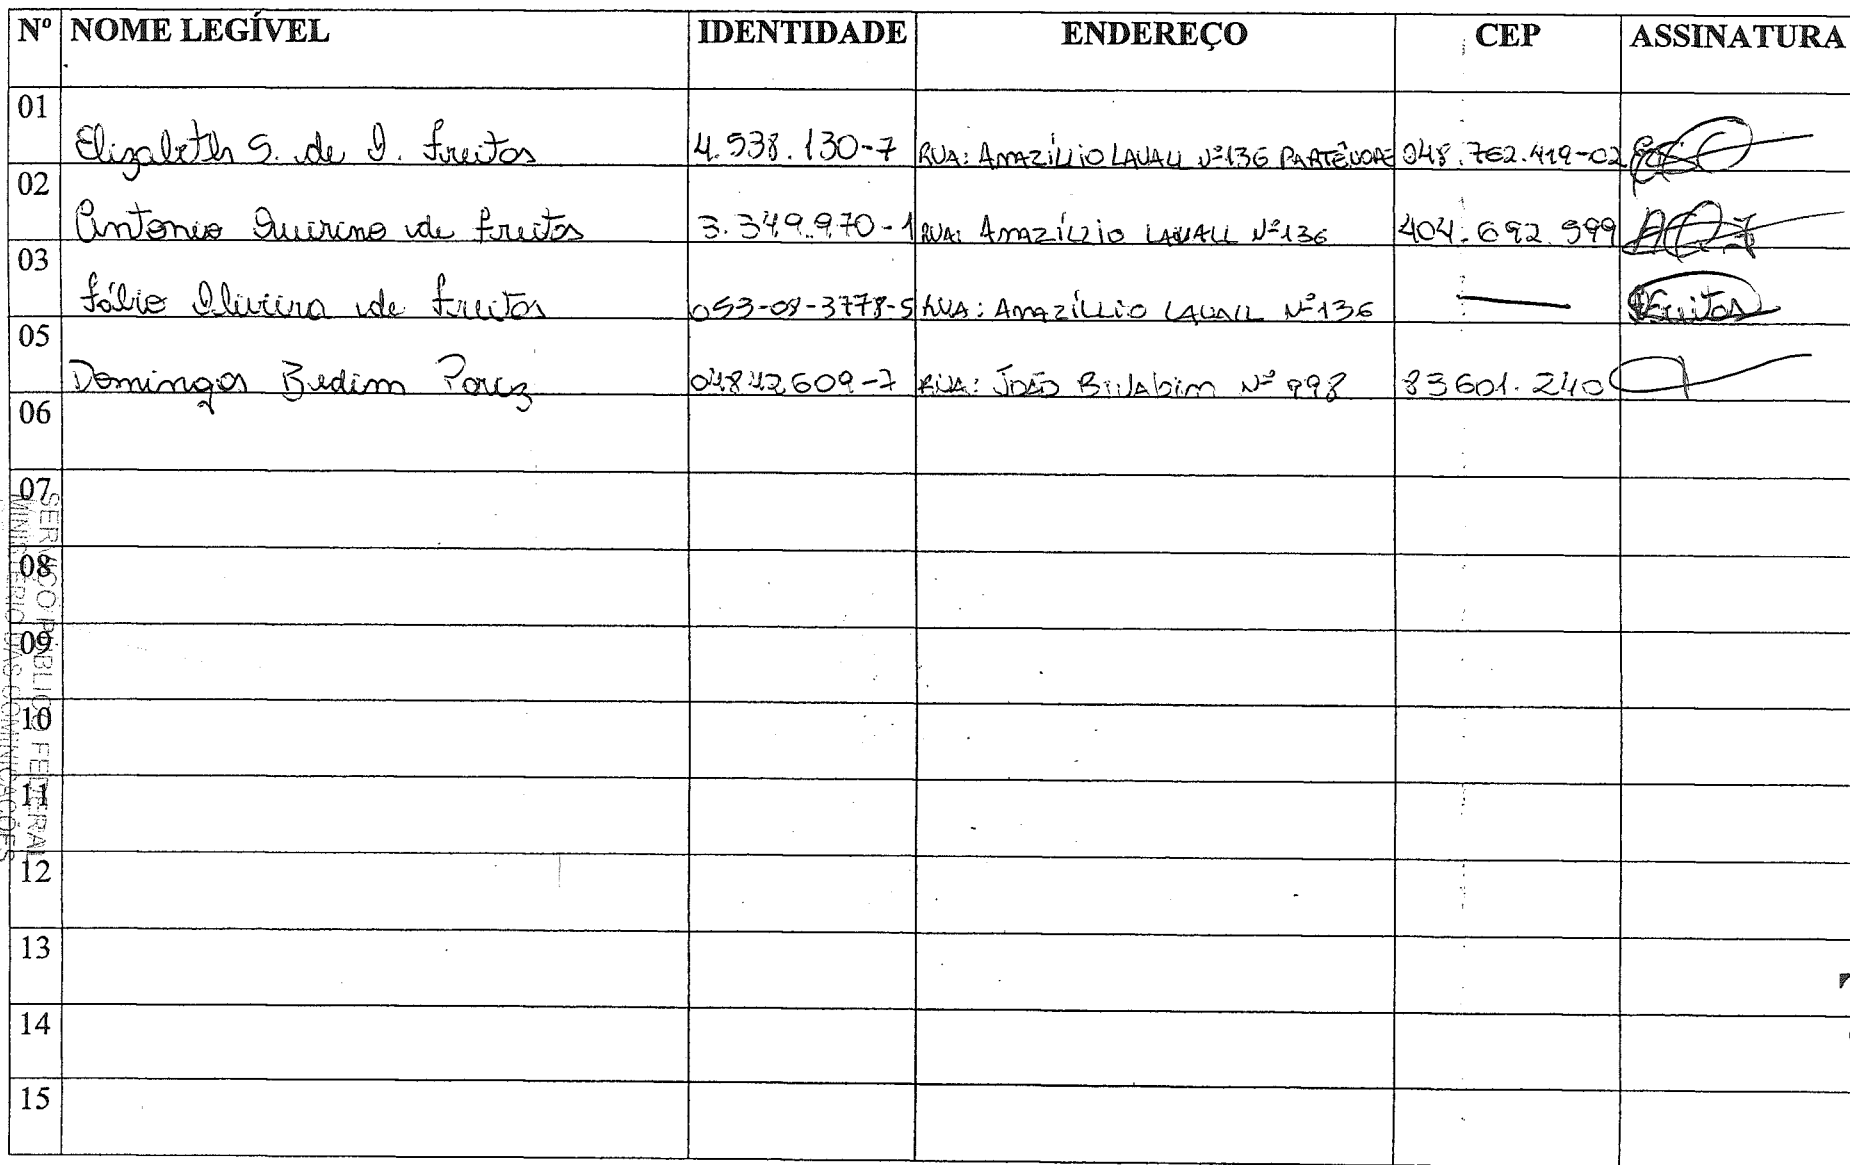 Nº NOME LEGÍVEL IDENTIDADE ENDEREÇO CEP ASSINATURA
01 Elizabeth S. de O. Freitas 4.538.130-7 RUA: AMAZÍLLIO LAVALL Nº 136 048.762.419-02
02 Antonio Quirino de Freitas 3.349.970-1 RUA: AMAZÍLLIO LAVALL Nº 136 404.692.999
03 Fábio Oliveira de Freitas 053-08-3778-5 RUA: AMAZÍLLIO LAVALL Nº 136 — Freitas
05 Domingos Bedim 04842609-7 RUA: JOÃO Nº 998 83601.240
06
07
08
09
10
11
12
13
14
15
SERVIÇO PÚBLICO FEDERAL
MINISTÉRIO DAS COMUNICAÇÕES